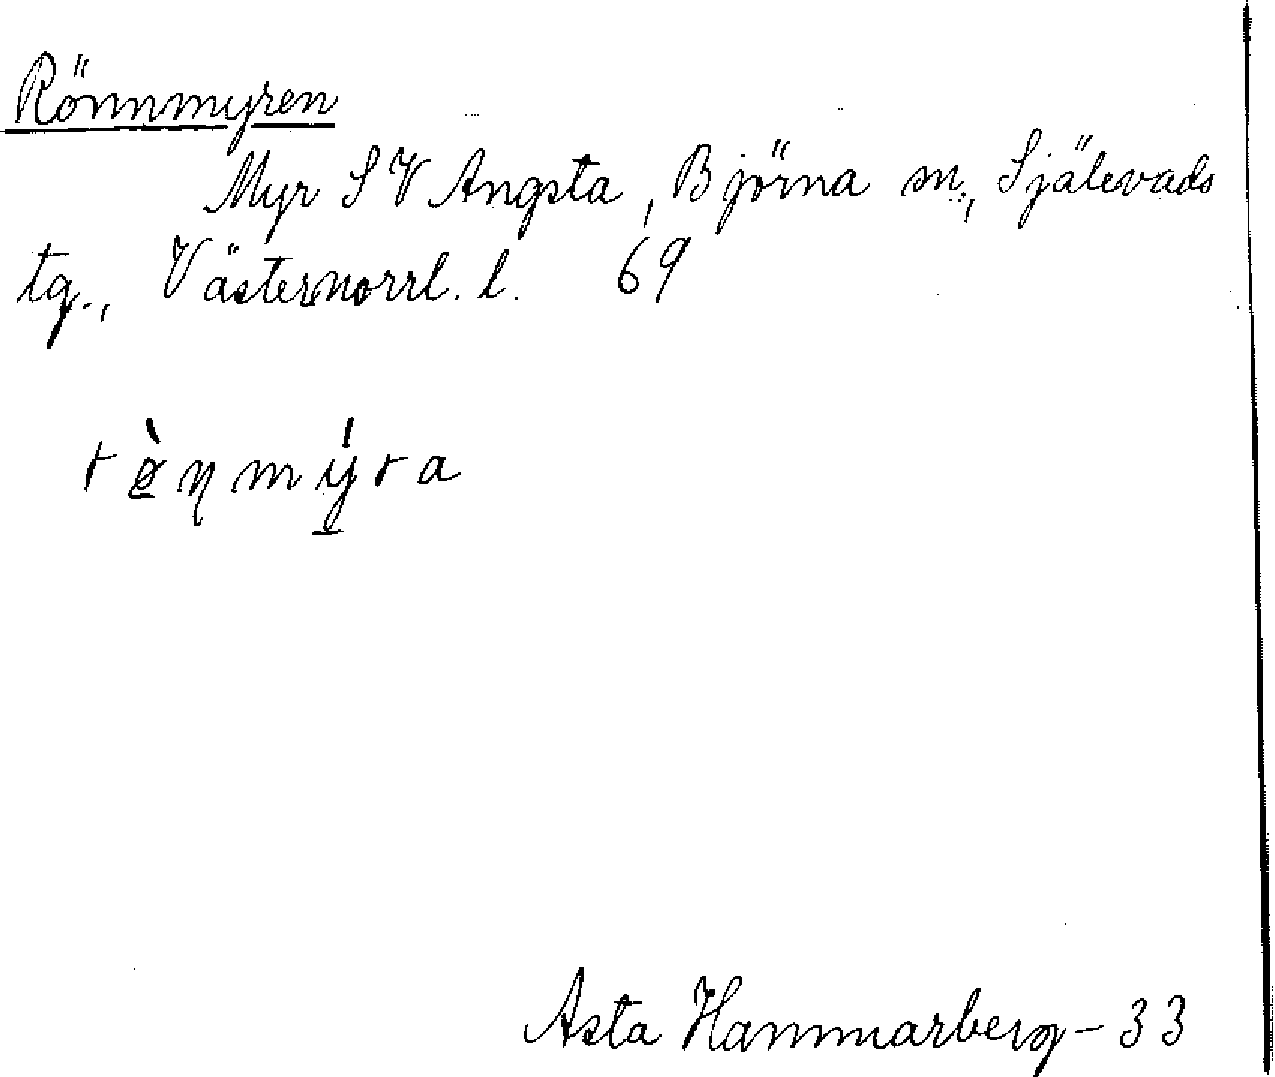 Rönnmyren
Myr SV Angsta, Björna sn., Själevads
tg., Västernorrl. l. 69
rø̀nmýra
Asta Hammarberg - 33